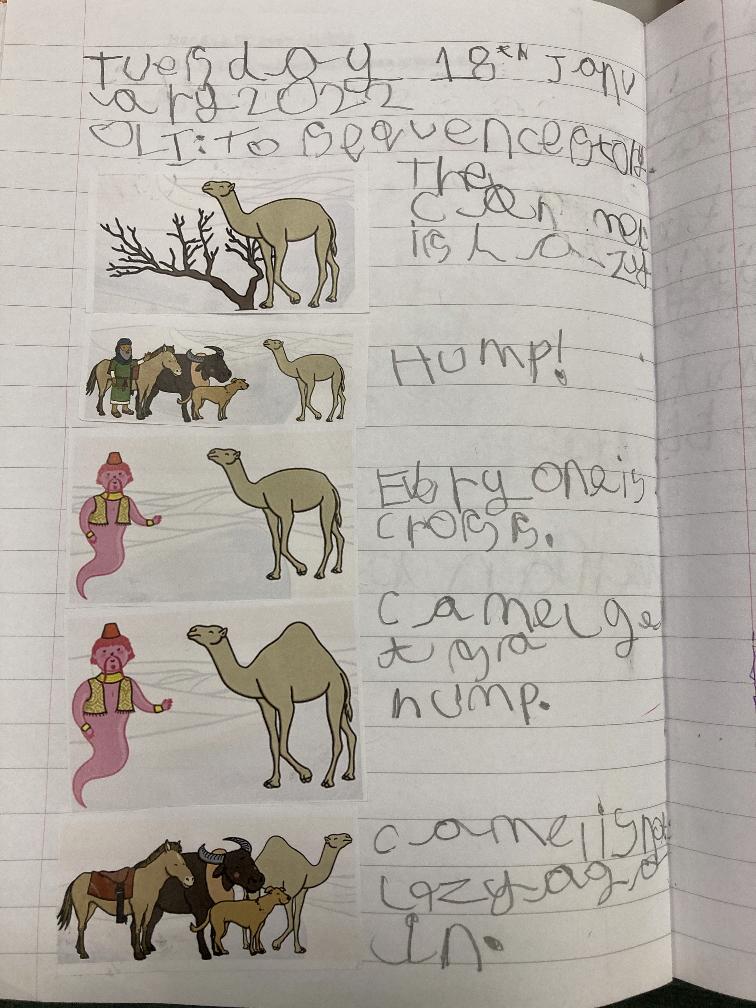 Tuesday 18th Janu
ary 2022
OLI: To sequence story
The
camel
is lazy
Hump!
Evryone is
cross.
camel ge
ts a
hump.
camel is not
lazy aga
in.